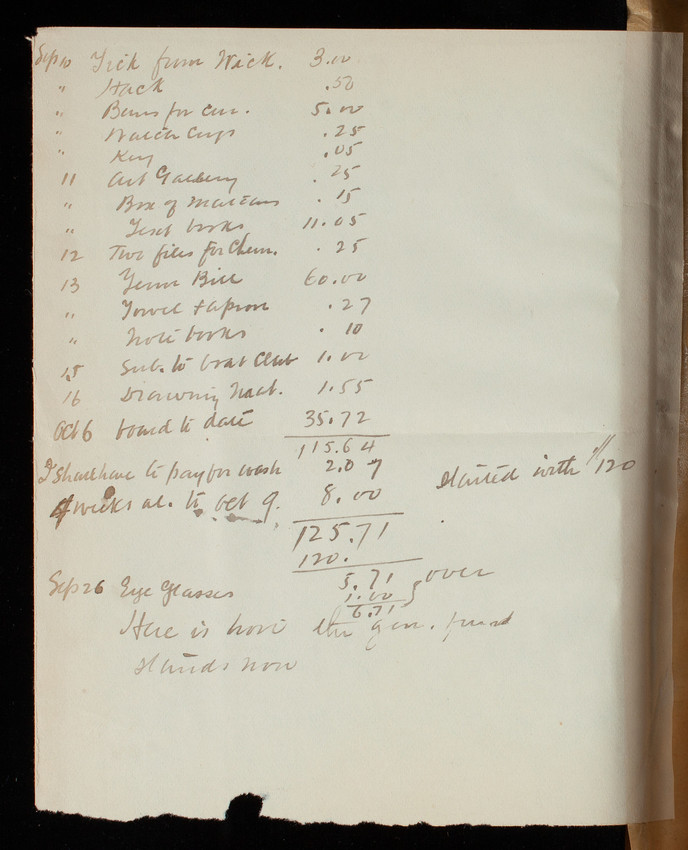 Sep 10 Tick from Wick. 3.00
" Hack .50
" for 5.00
" .25
" Key .05
11 Art Gallery .25
" Box of .15
" Text books 11.05
12 Two files for Chem. .25
13 Term Bill 60.00
" Towel & apron .27
" Note books .10
15 Sub. to boat Club 1.00
16 Drawing 1.55
Oct 6 board to date 35.72
115.64
I shall have to pay for wash 2.07
4 weeks al. to Oct 9. 8.00
started with $120
125.71
120.
5.71 over
Sep 26 Eye Glasses 1.00
6.71
Here is how the gen. fund
stands now